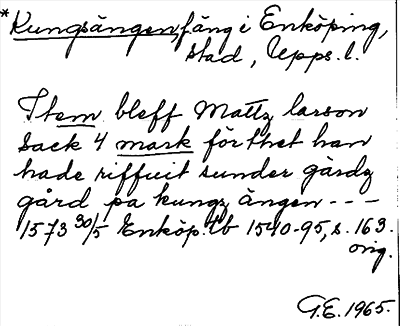 *Kungsängen, fäng i Enköping,
stad, Upps. l.
Item bleff Mattz larson
sack 4 mark för thet han
hade riffuit sunder gärdz
gård pa kungz ängen - - -
1573 30/5 Enköp. tb 1540-95, s. 163.
orig.
G.E. 1965.